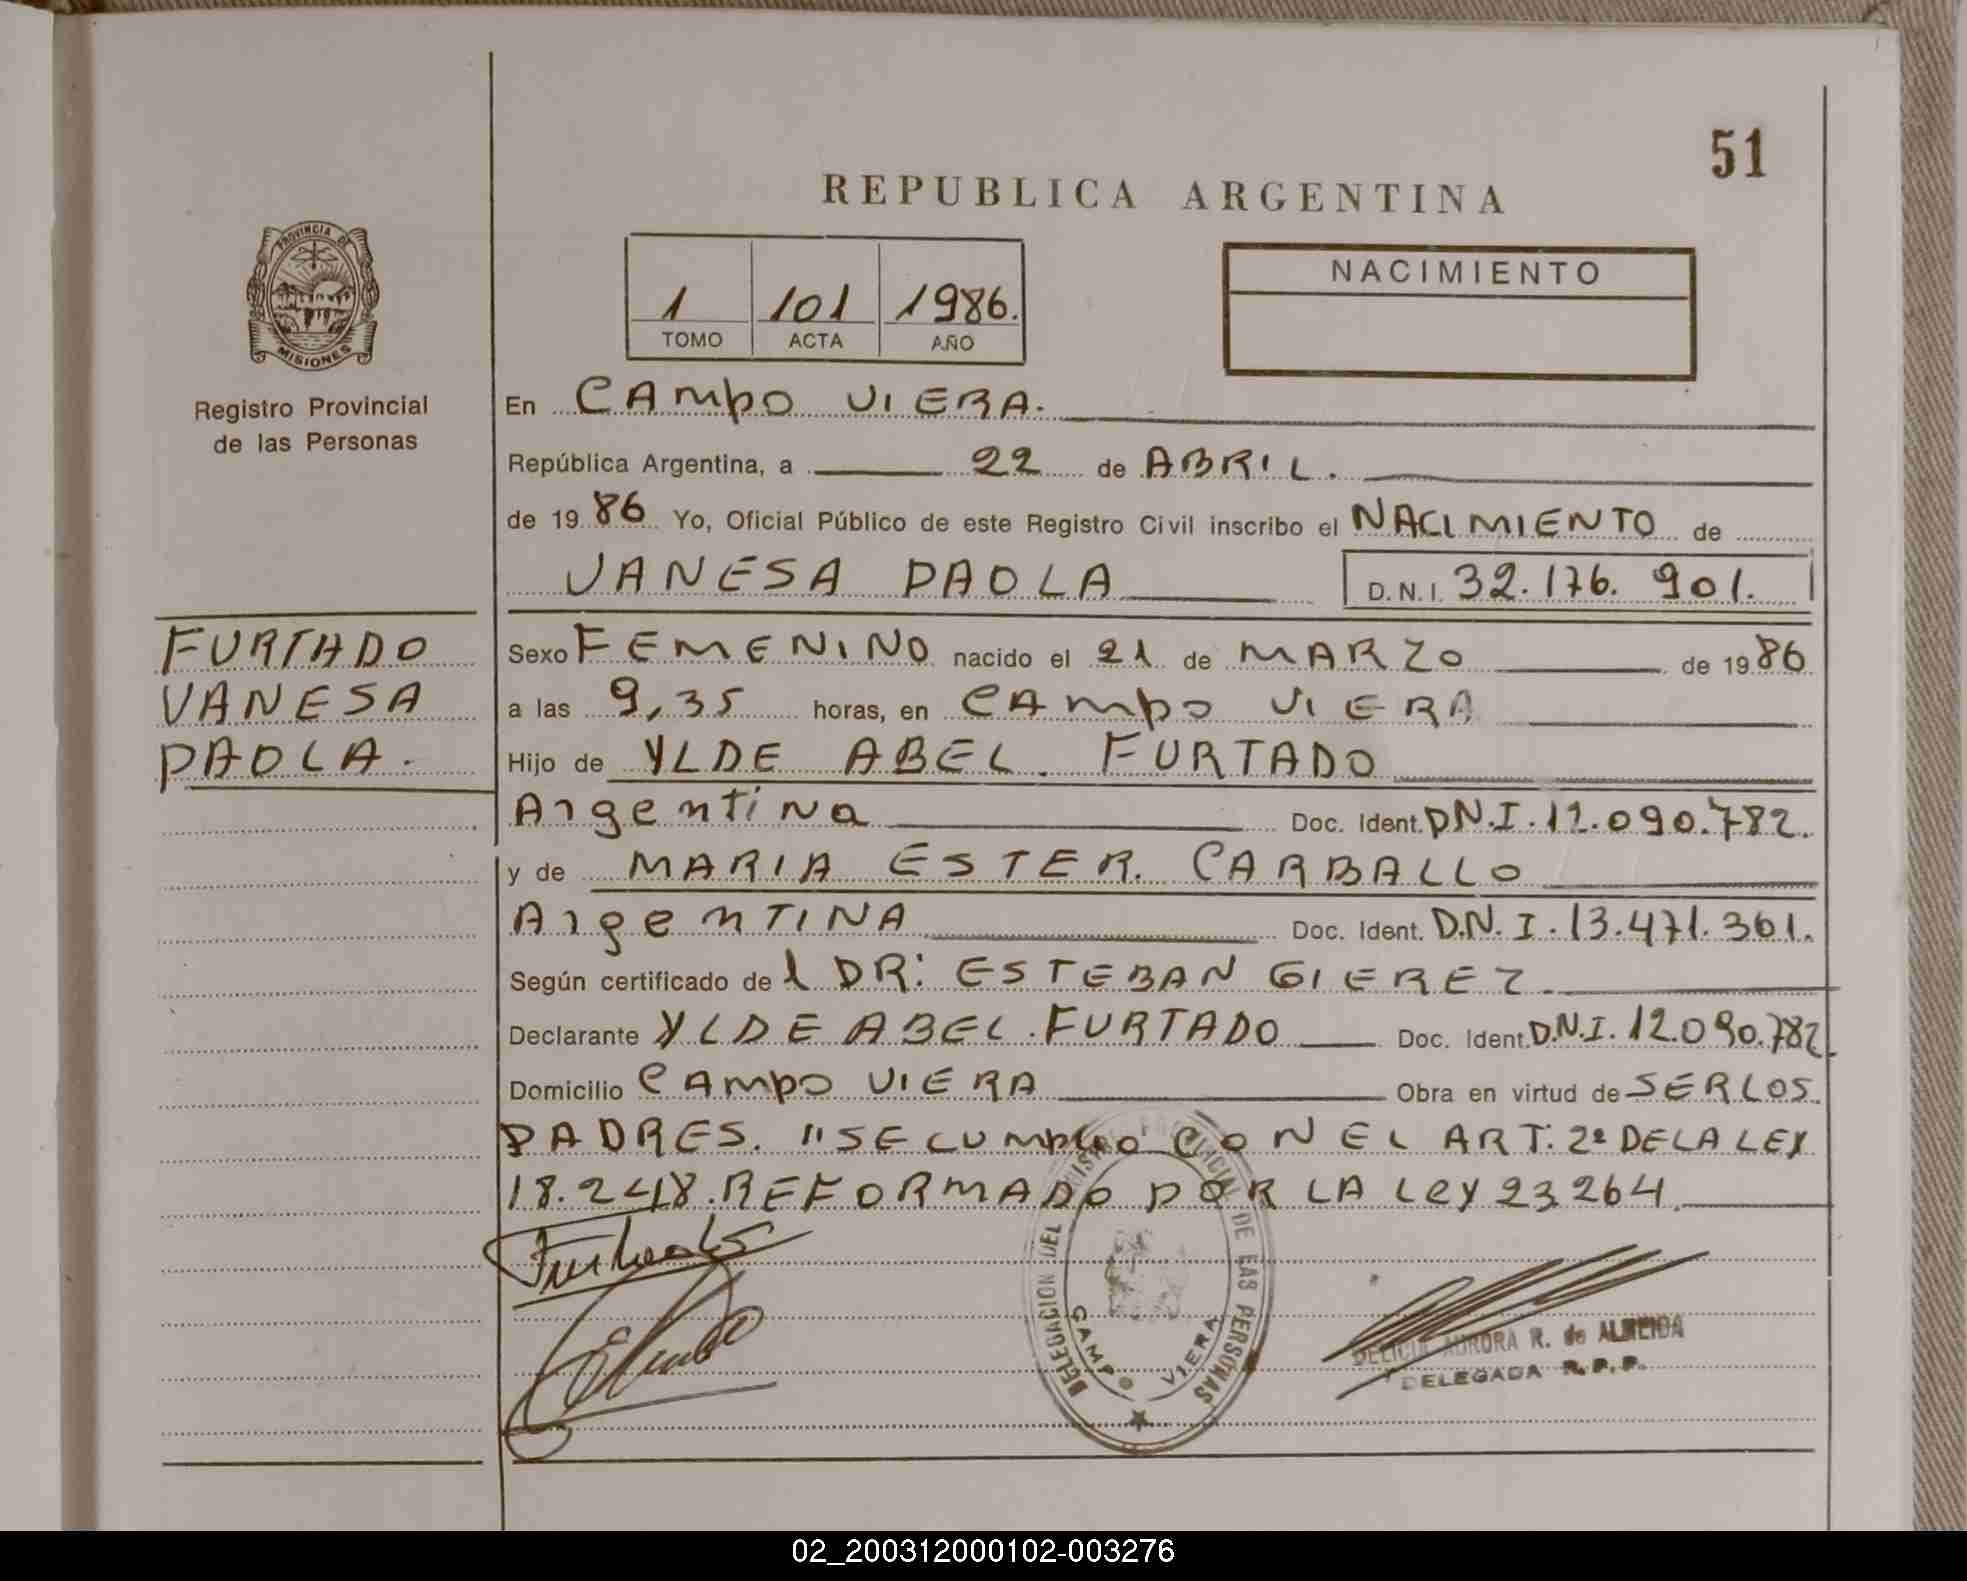 51
REPUBLICA ARGENTINA
PROVINCIA DE
MISIONES
Registro Provincial
de las Personas
1 101 1986.
TOMO ACTA AÑO
NACIMIENTO
En CAMPO VIERA.
República Argentina, a 22 de ABRIL.
de 1986 Yo, Oficial Público de este Registro Civil inscribo el NACIMIENTO de
VANESA PAOLA D.N.I. 32.176.901.
FURTADO
VANESA
PAOLA.
Sexo FEMENINO nacido el 21 de MARZO de 1986
a las 9,35 horas, en CAMPO VIERA
Hijo de YLDE ABEL. FURTADO
Argentina Doc. Ident. DN.I.12.090.782.
y de MARIA ESTER. CARBALLO
ArgenTINA Doc. Ident. D.N.I.13.471.361.
Según certificado de l DR: ESTEBAN GIEREZ.
Declarante YLDE ABEL.FURTADO Doc. Ident. D.N.I. 12.090.782.
Domicilio CAMPO VIERA Obra en virtud de SER LOS
PADRES. "SE CUMPLIO CON EL ART. 2º DE LA LEY
18.248.REFORMADO POR LA LEY 23264.
DELEGACION DEL REGISTRO PROVINCIAL DE LAS PERSONAS
CAMPO VIERA
AURORA R. de ALMEIDA
DELEGADA R.P.P.
02_200312000102-003276